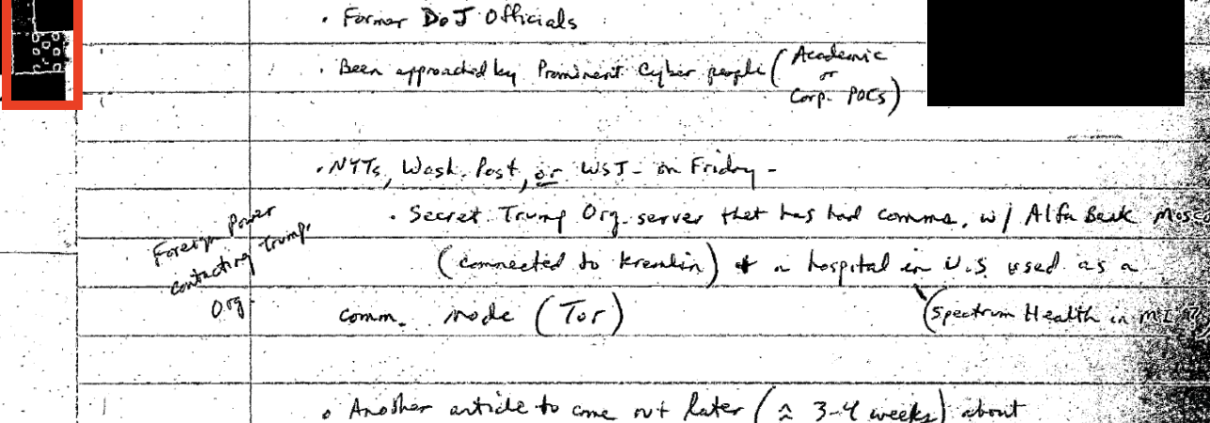 . Former DoJ Officials
. Been approached by Prominent Cyber people (Academic
or
Corp. POCs)
. NYTs, Wash. Post, or WSJ - on Friday -
. Secret Trump Org. server that has had comms. w/ Alfa Bank Mosco
Foreign Power
contacting Trump.
Org.
(connected to Kremlin) + a hospital in U.S used as a
comm. node (Tor)
(Spectrum Health in MI
. Another article to come out later (≈ 3-4 weeks) about